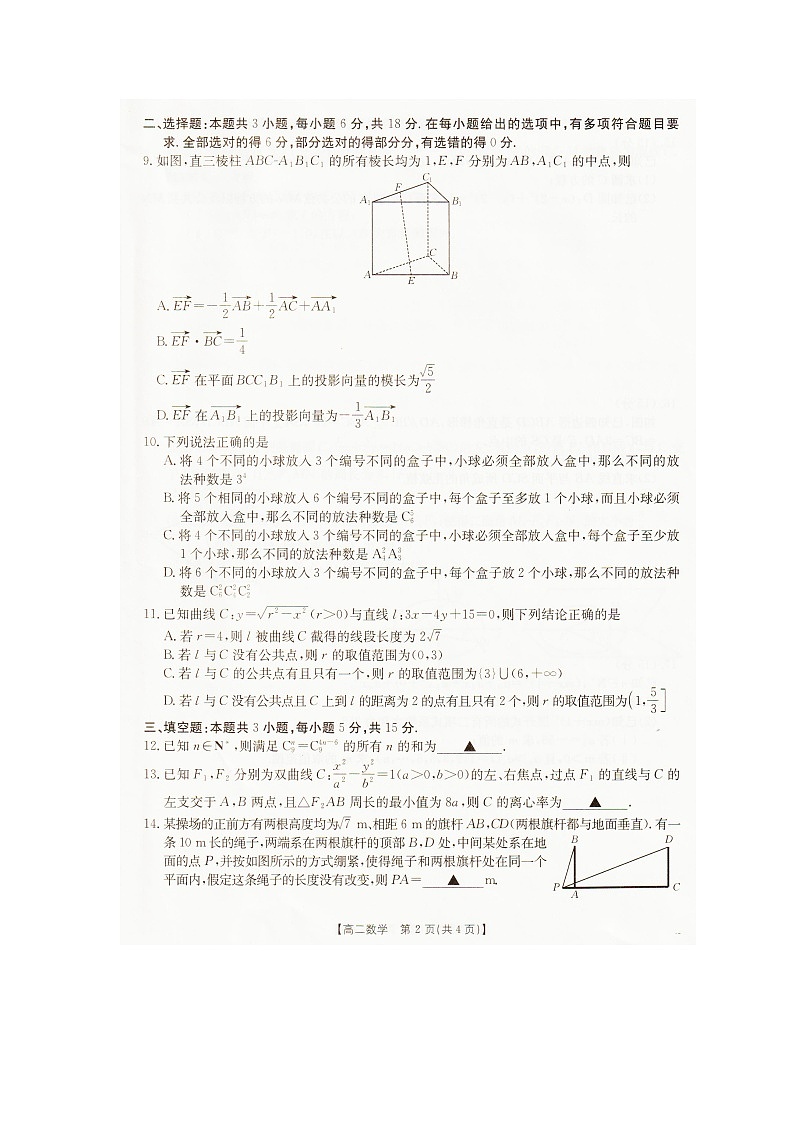 二、选择题:本题共 3 小题,每小题 6 分,共 18 分. 在每小题给出的选项中,有多项符合题目要
求. 全部选对的得 6 分,部分选对的得部分分,有选错的得 0 分.
9. 如图,直三棱柱 ABC-A₁B₁C₁ 的所有棱长均为 1,E,F 分别为 AB,A₁C₁ 的中点,则
C₁
F
A₁
B₁
C
A
E
B
A. $\overrightarrow{EF}=-\frac{1}{2}\overrightarrow{AB}+\frac{1}{2}\overrightarrow{AC}+\overrightarrow{AA_1}$
B. $\overrightarrow{EF}\cdot\overrightarrow{BC}=\frac{1}{4}$
C. $\overrightarrow{EF}$ 在平面 BCC₁B₁ 上的投影向量的模长为$\frac{\sqrt{5}}{2}$
D. $\overrightarrow{EF}$ 在 $\overrightarrow{A_1B_1}$ 上的投影向量为$-\frac{1}{3}\overrightarrow{A_1B_1}$
10. 下列说法正确的是
A. 将 4 个不同的小球放入 3 个编号不同的盒子中,小球必须全部放入盒中,那么不同的放
法种数是 3⁴
B. 将 5 个相同的小球放入 6 个编号不同的盒子中,每个盒子至多放 1 个小球,而且小球必须
全部放入盒中,那么不同的放法种数是 $C_6^5$
C. 将 4 个不同的小球放入 3 个编号不同的盒子中,小球必须全部放入盒中,每个盒子至少放
1 个小球,那么不同的放法种数是 $A_4^2A_3^3$
D. 将 6 个不同的小球放入 3 个编号不同的盒子中,每个盒子放 2 个小球,那么不同的放法种
数是 $C_6^2C_4^2C_2^2$
11. 已知曲线 C:$y=\sqrt{r^2-x^2}$(r>0)与直线 l:3x−4y+15=0,则下列结论正确的是
A. 若 r=4,则 l 被曲线 C 截得的线段长度为 $2\sqrt{7}$
B. 若 l 与 C 没有公共点,则 r 的取值范围为(0,3)
C. 若 l 与 C 的公共点有且只有一个,则 r 的取值范围为{3}∪(6,+∞)
D. 若 l 与 C 没有公共点且 C 上到 l 的距离为 2 的点有且只有 2 个,则 r 的取值范围为$\left(1,\frac{5}{3}\right]$
三、填空题:本题共 3 小题,每小题 5 分,共 15 分.
12. 已知 n∈N*,则满足 $C_9^n=C_9^{4n-6}$ 的所有 n 的和为 ▲ .
13. 已知 F₁,F₂ 分别为双曲线 C:$\frac{x^2}{a^2}-\frac{y^2}{b^2}=1$(a>0,b>0)的左、右焦点,过点 F₁ 的直线与 C 的
左支交于 A,B 两点,且△F₂AB 周长的最小值为 8a,则 C 的离心率为 ▲ .
14. 某操场的正前方有两根高度均为$\sqrt{7}$ m、相距 6 m 的旗杆 AB,CD(两根旗杆都与地面垂直). 有一
条 10 m 长的绳子,两端系在两根旗杆的顶部 B,D 处,中间某处系在地
面的点 P,并按如图所示的方式绷紧,使得绳子和两根旗杆处在同一个
平面内,假定这条绳子的长度没有改变,则 PA= ▲ m.
B
D
P
A
C
【高二数学 第 2 页(共 4 页)】